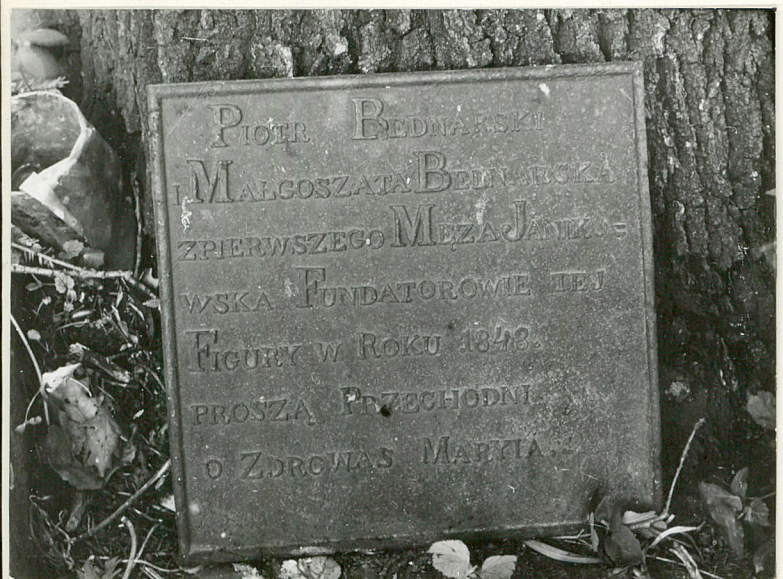 PIOTR BEDNARSKI
I MAŁGOSZATA BEDNARSKA
ZPIERWSZEGO MĘZA JANIKO=
WSKA FUNDATOROWIE TEJ
FIGURY W ROKU 1848.
PROSZĄ PRZECHODNI
O ZDROWAS MARYIA.